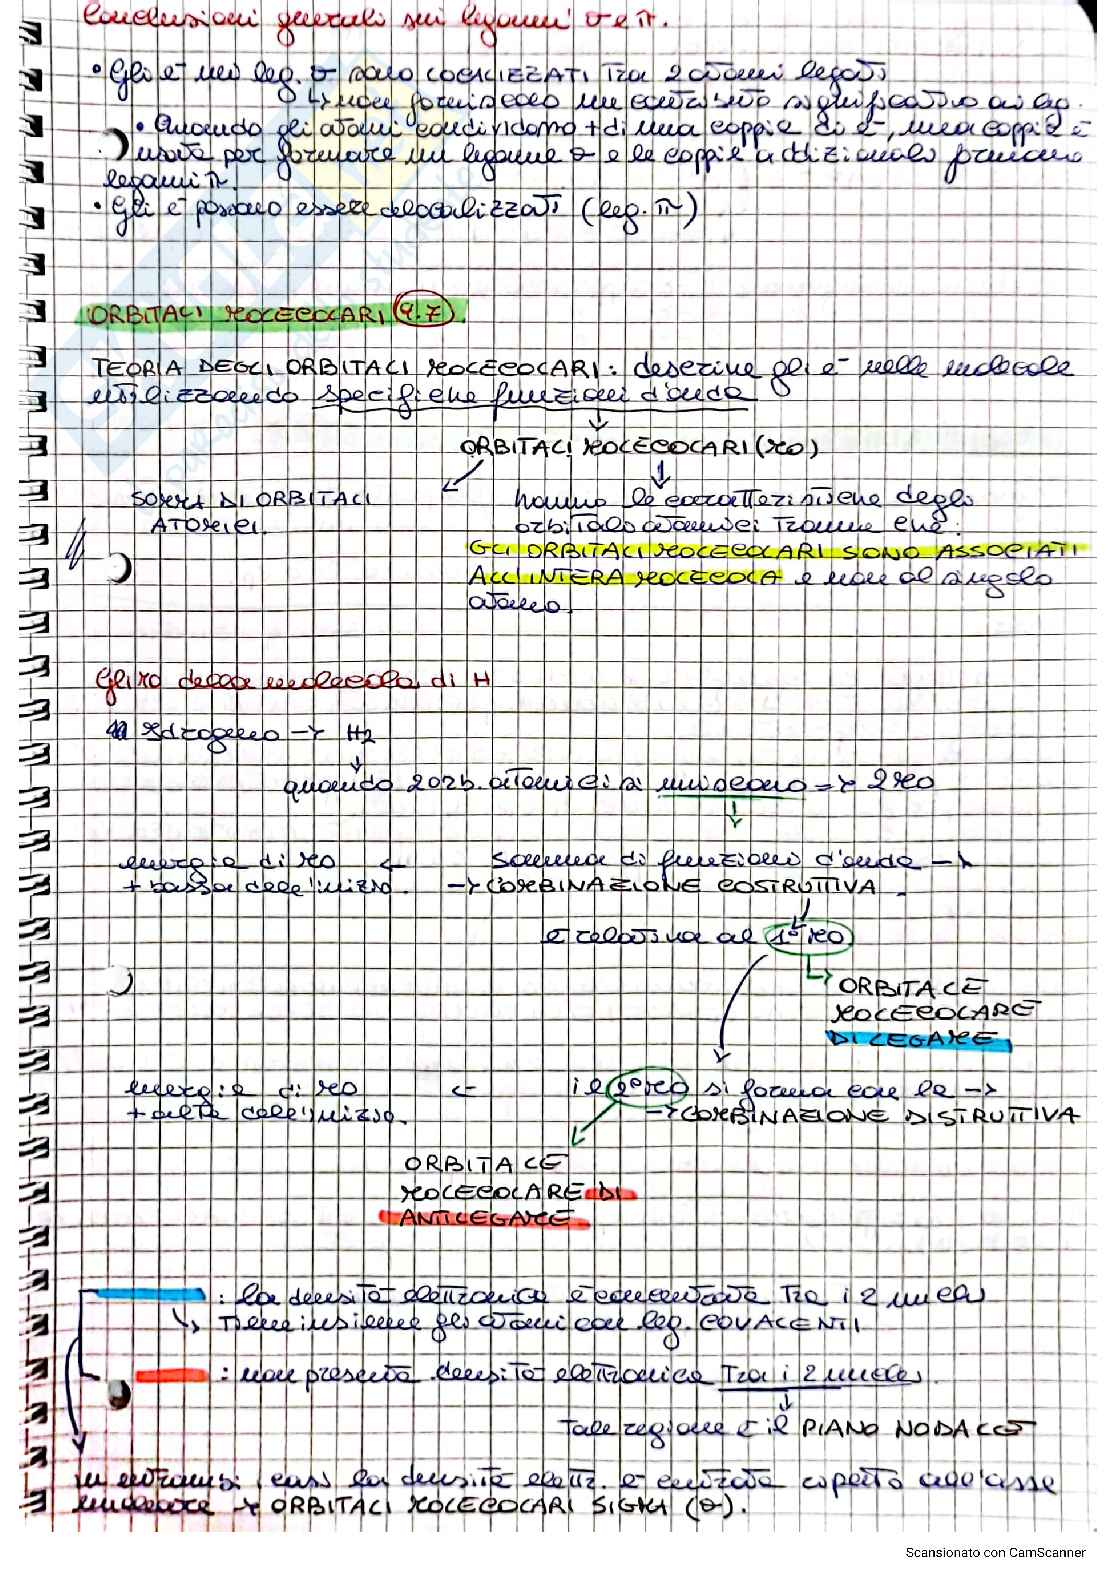 Conclusioni generali sui legami σ e π.
• Gli e⁻ nei leg. σ sono LOCALIZZATI tra 2 atomi legati
↳ non forniscono un contributo significativo ai leg.
• Quando gli atomi condividono + di una coppia di e⁻, una coppia è
usata per formare un legame σ e le coppie addizionali formano
legami π.
• Gli e⁻ possono essere delocalizzati (leg. π)
ORBITALI MOLECOLARI 9.7
TEORIA DEGLI ORBITALI MOLECOLARI: descrive gli e⁻ nelle molecole
utilizzando specifiche funzioni d'onda
ORBITALI MOLECOLARI (MO)
SOMMA DI ORBITALI
ATOMICI.
hanno le caratteristiche degli
orbitali atomici tranne che:
GLI ORBITALI MOLECOLARI SONO ASSOCIATI
ALL'INTERA MOLECOLA e non al singolo
atomo.
Gli MO della molecola di H
Idrogeno → H2
quando 2 orb. atomici si uniscono => 2 MO
energia di MO ← somma di funzioni d'onda →
+ bassa dell'inizio. → COMBINAZIONE COSTRUTTIVA.
è relativa al 1° MO
↳ ORBITALE
MOLECOLARE
DI LEGAME
energia di MO ← il 2° MO si forma con la →
+ alta dell'inizio. → COMBINAZIONE DISTRUTTIVA
ORBITALE
MOLECOLARE DI
ANTILEGAME
: la densità elettronica è concentrata tra i 2 nuclei
↳ tiene insieme gli atomi con leg. COVALENTI
: non presenta densità elettronica tra i 2 nuclei.
Tale regione è il PIANO NODALE
in entrambi i casi la densità elettr. è centrata rispetto all'asse
nucleare → ORBITALI MOLECOLARI SIGMA (σ).
Scansionato con CamScanner